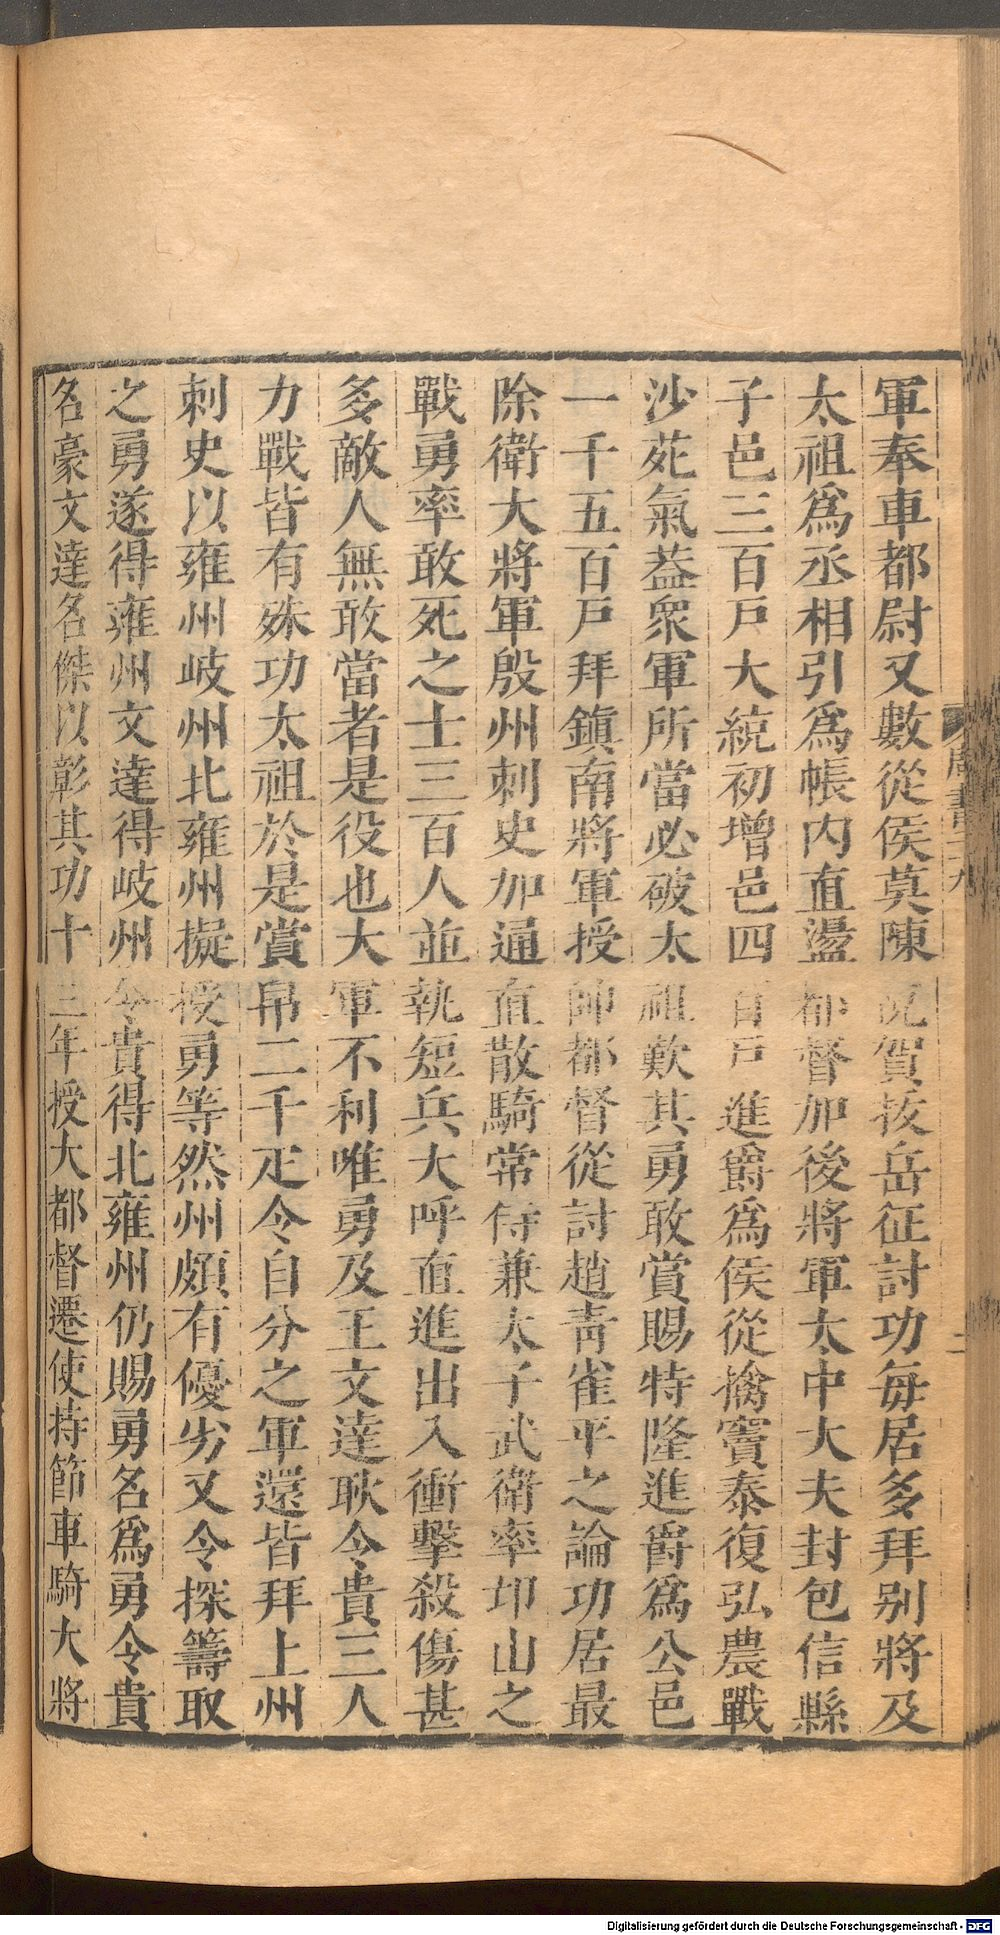 軍奉車都尉又數從侯莫陳悅賀拔岳征討功每居多拜別將及
太祖爲丞相引爲帳內直盪都督加後將軍太中大夫封包信縣
子邑三百戸大統初增邑四百戸進爵爲侯從擒竇泰復弘農戰
沙苑氣葢眾軍所當必破太祖歎其勇敢賞賜特隆進爵爲公邑
一千五百戸拜鎮南將軍授帥都督從討趙青雀平之論功居最
除衛大將軍殷州刺史加通直散騎常侍兼太子武衛率邙山之
戰勇率敢死之士三百人並執短兵大呼直進出入衝擊殺傷甚
多敵人無敢當者是役也大軍不利唯勇及王文達耿令貴三人
力戰皆有殊功太祖於是賞帛二千疋令自分之軍還皆拜上州
刺史以雍州岐州北雍州擬授勇等然州頗有優劣又令探籌取
之勇遂得雍州文達得岐州令貴得北雍州仍賜勇名爲勇令貴
名豪文達名傑以彰其功十三年授大都督遷使持節車騎大將
Digitalisierung gefördert durch die Deutsche Forschungsgemeinschaft - DFG